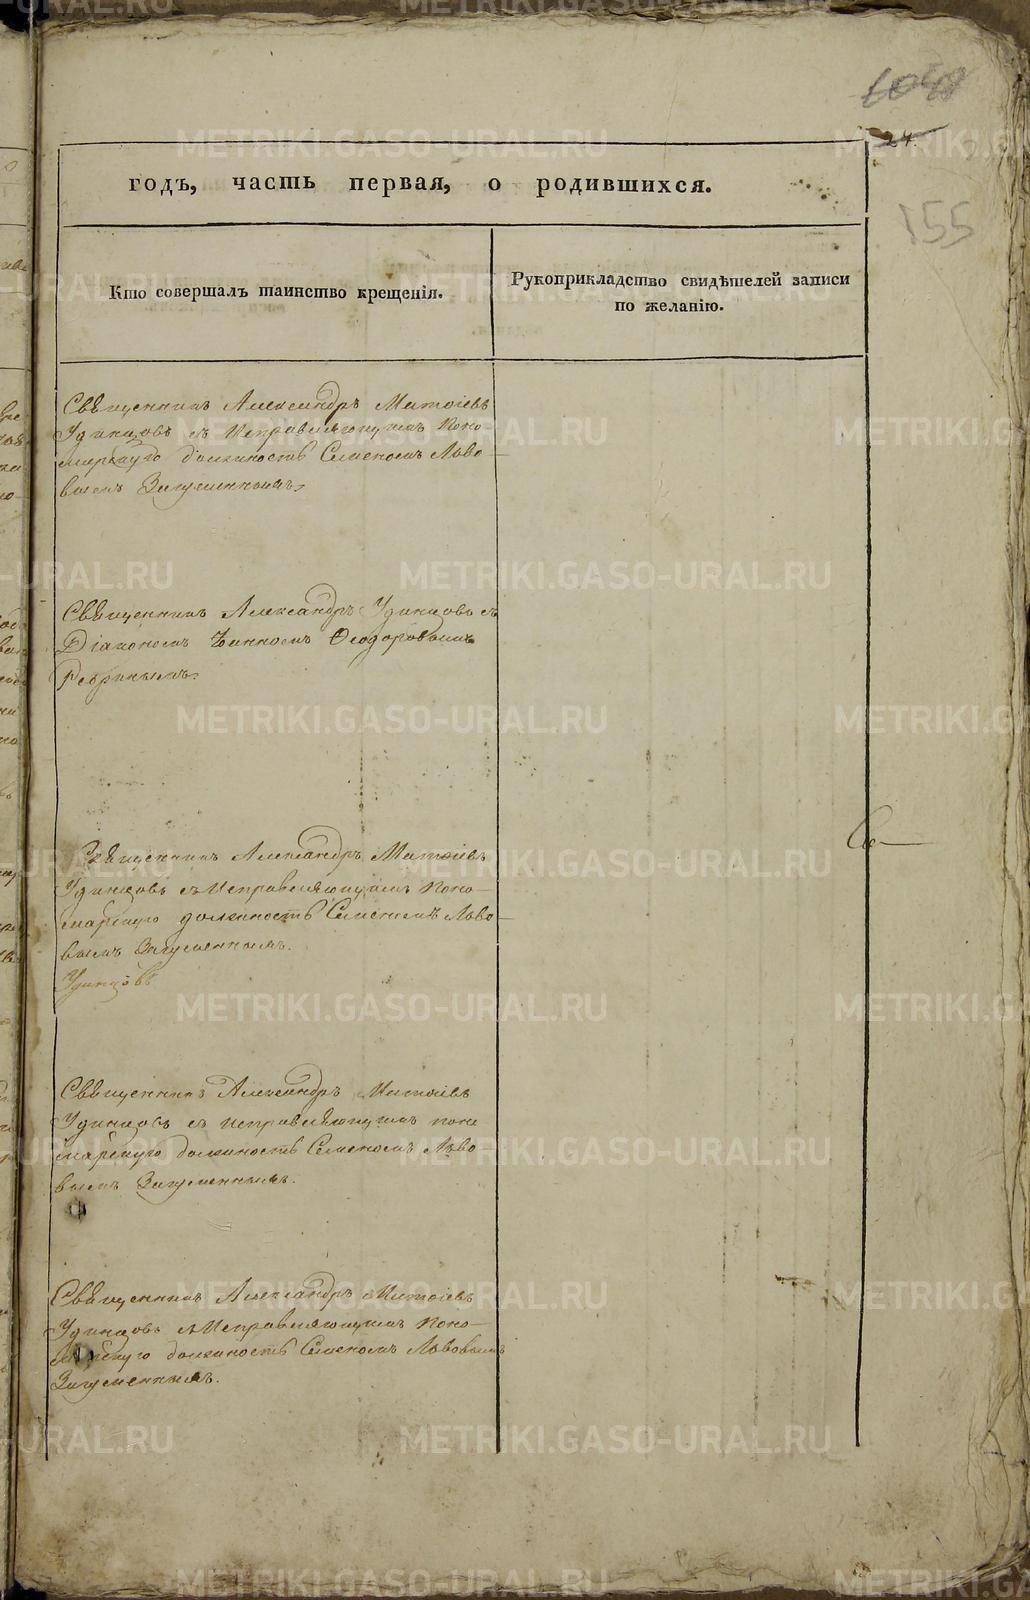 24.
155
годъ, часть первая, о родившихся.
Кто совершалъ таинство крещенія.
Рукоприкладство свидѣтелей записи
по желанію.
Священникъ Александръ Матѳіевъ
Удинцовъ съ Исправляющимъ Поно-
марскую должность Семеномъ Льво-
вымъ Загуменнымъ.
Священникъ Александръ Удинцовъ съ
Діакономъ Іоанномъ Ѳеодоровымъ
Ребринымъ.
Священникъ Александръ Матѳіевъ
Удинцовъ съ Исправляющимъ Поно-
марскую должность Семеномъ Льво-
вымъ Загуменнымъ.
Удинцовъ
Священникъ Александръ Матѳіевъ
Удинцовъ съ исправляющимъ поно
марскую должность Семеномъ Льво-
вымъ Загуменнымъ.
Священникъ Александръ Матѳіевъ
Удинцовъ съ Исправляющимъ Поно-
марскую должность Семеномъ Львовымъ
Загуменнымъ.
METRIKI.GASO-URAL.RU